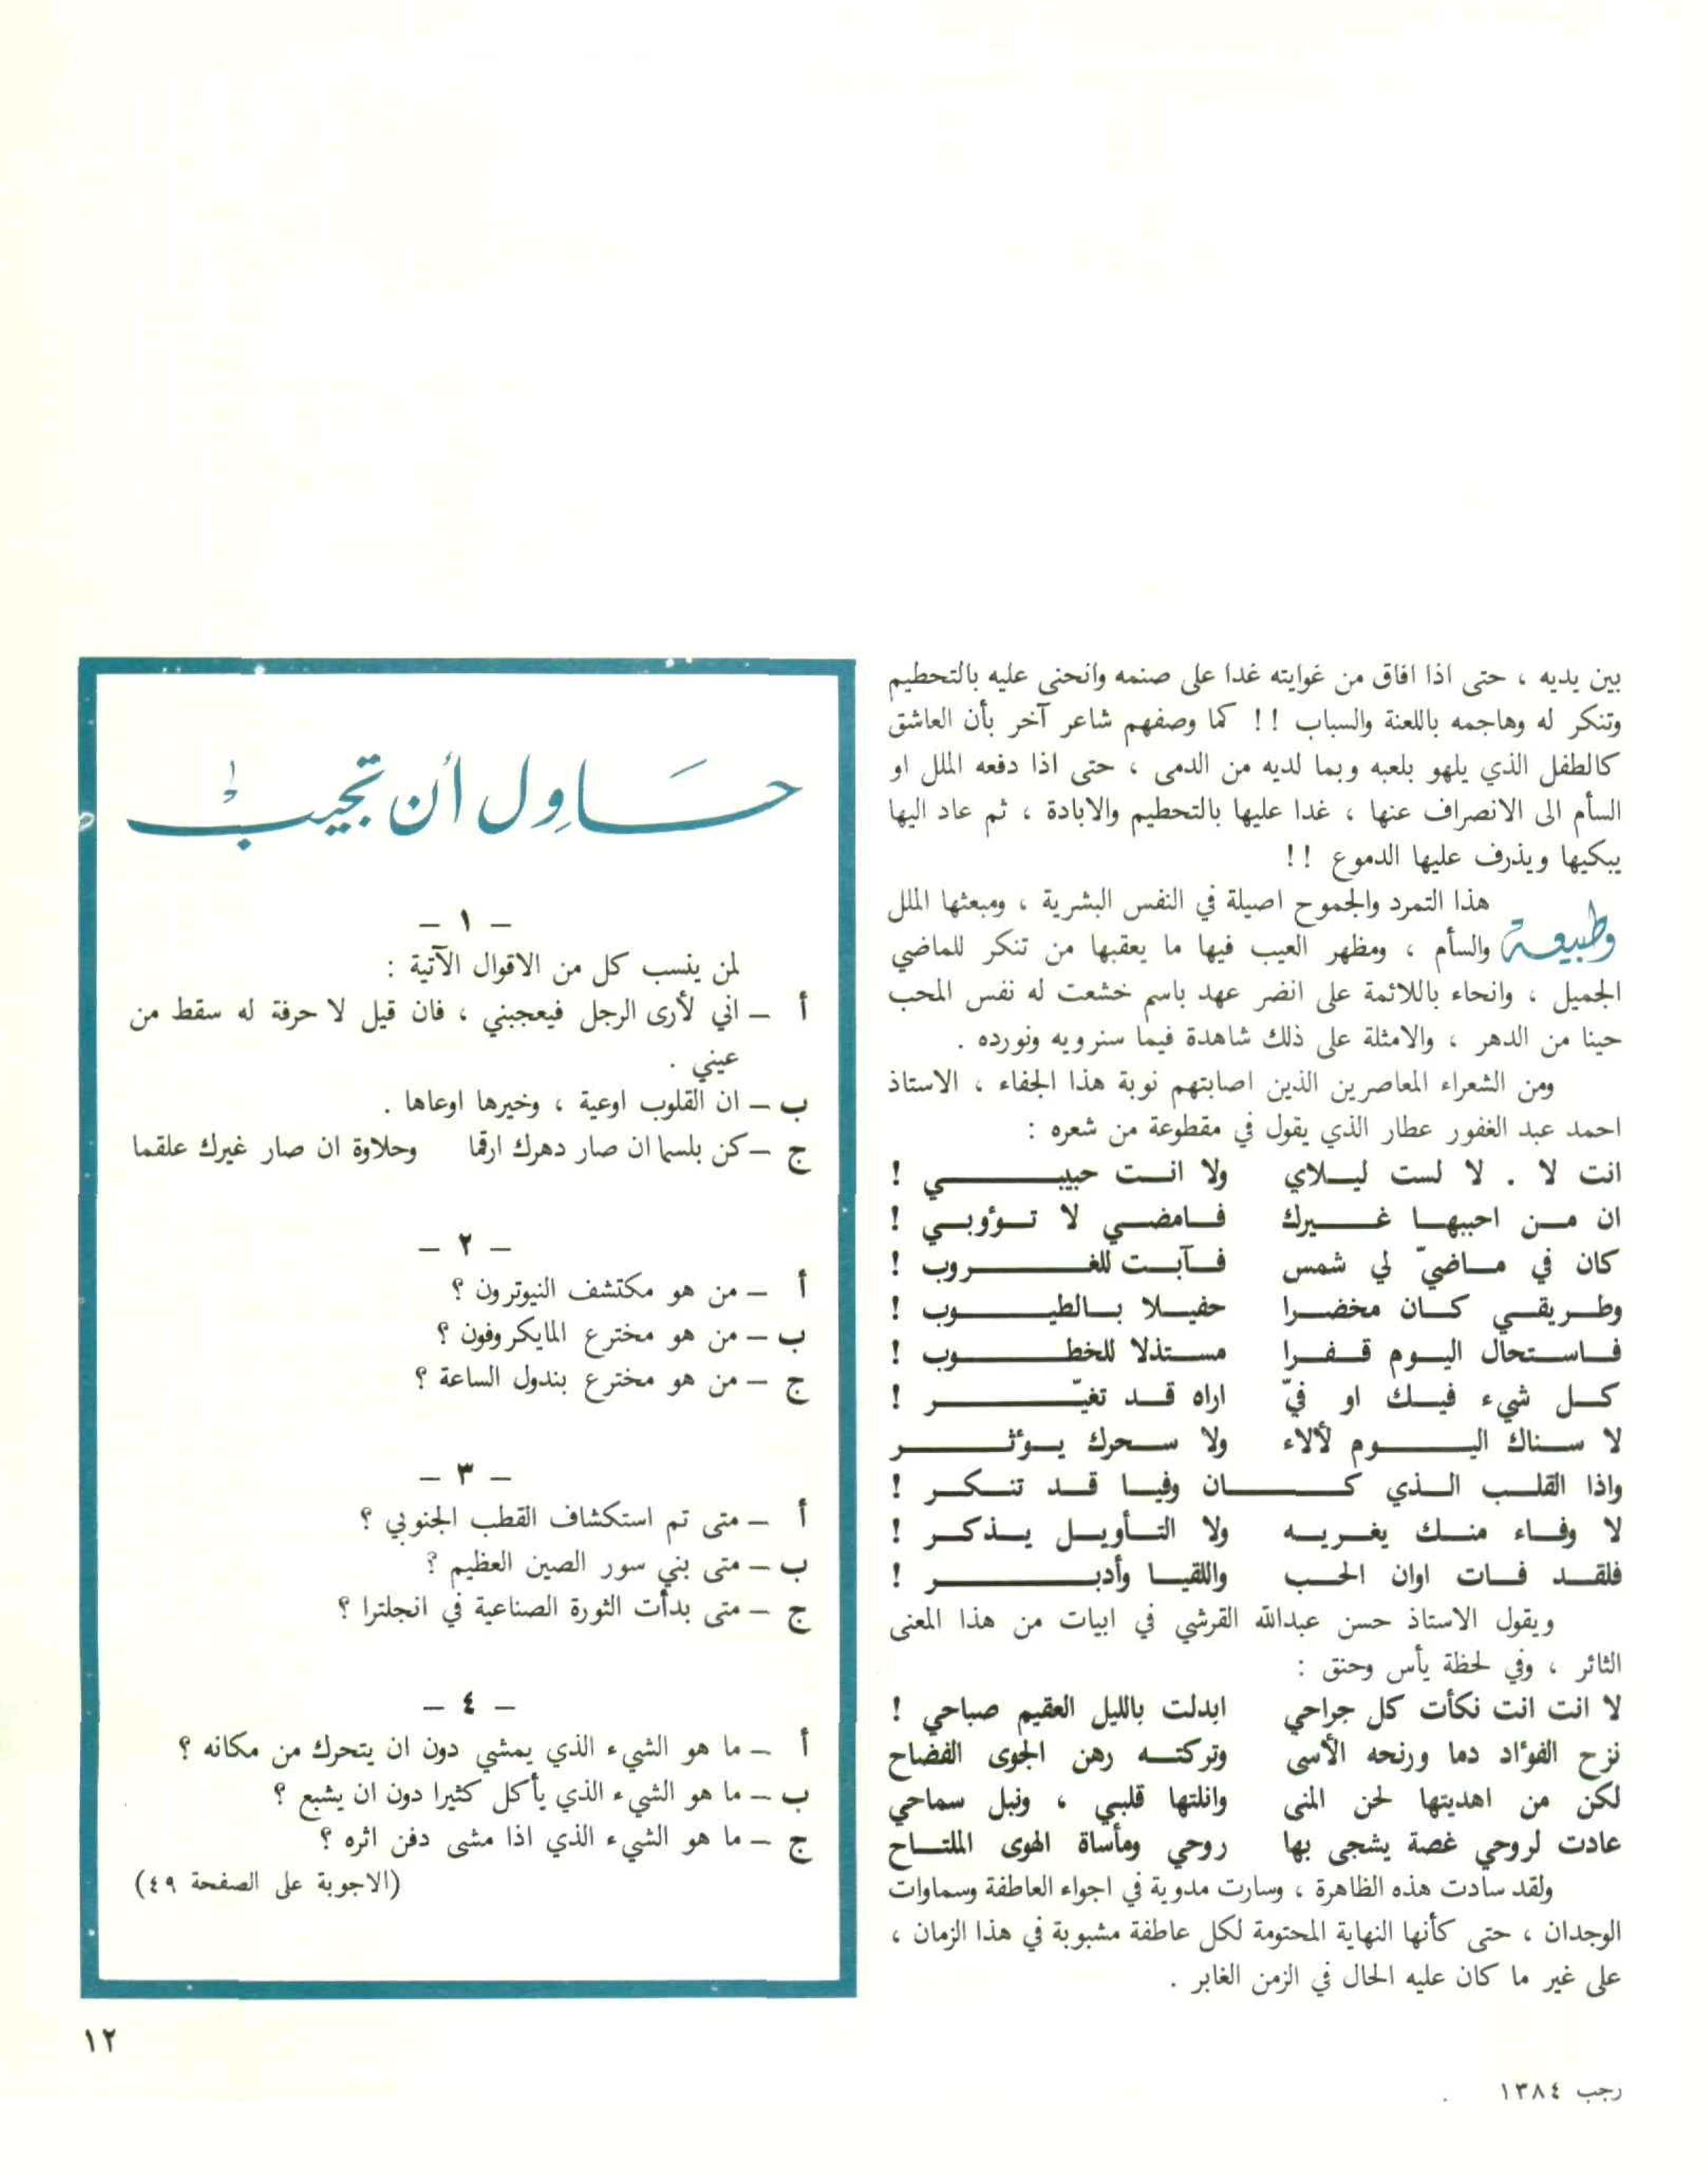 بين يديه ، حتى اذا افاق من غوايته غدا على صنمه وانحنى عليه بالتحطيم
وتنكر له وهاجمه باللعنة والسباب !! كما وصفهم شاعر آخر بأن العاشق
كالطفل الذي يلهو بلعبه وبما لديه من الدمى ، حتى اذا دفعه الملل او
السأم الى الانصراف عنها ، غدا عليها بالتحطيم والابادة ، ثم عاد اليها
يبكيها ويذرف عليها الدموع !!
وطبيعة هذا التمرد والجموح اصيلة في النفس البشرية ، ومبعثها الملل
والسأم ، ومظهر العيب فيها ما يعقبها من تنكر للماضي
الجميل ، وانحاء باللائمة على انضر عهد باسم خشعت له نفس المحب
حينا من الدهر ، والامثلة على ذلك شاهدة فيما سنرويه ونورده .
ومن الشعراء المعاصرين الذين اصابتهم نوبة هذا الجفاء ، الاستاذ
احمد عبد الغفور عطار الذي يقول في مقطوعة من شعره :
انت لا . لا لست ليلاي ولا انت حبيبي !
ان من احببها غيرك فامضي لا تؤوبي !
كان في ماضيّ لي شمس فآبت للغروب !
وطريقي كان مخضرا حفيلا بالطيوب !
فاستحال اليوم قفرا مستذلا للخطوب !
كل شيء فيك او فيّ اراه قد تغيّر !
لا سناك اليوم لألاء ولا سحرك يؤثر
واذا القلب الذي كان وفيا قد تنكر !
لا وفاء منك يغريه ولا التأويل يذكر !
فلقد فات اوان الحب واللقيا وأدبر !
ويقول الاستاذ حسن عبدالله القرشي في ابيات من هذا المعنى
الثائر ، وفي لحظة يأس وحنق :
لا انت انت نكأت كل جراحي ابدلت بالليل العقيم صباحي !
نزح الفؤاد دما ورنحه الأسى وتركته رهن الجوى الفضاح
لكن من اهديتها لحن المنى وانلتها قلبي ، ونبل سماحي
عادت لروحي غصة يشجى بها روحي ومأساة الهوى الملتاح
ولقد سادت هذه الظاهرة ، وسارت مدوية في اجواء العاطفة وسماوات
الوجدان ، حتى كأنها النهاية المحتومة لكل عاطفة مشبوبة في هذا الزمان ،
على غير ما كان عليه الحال في الزمن الغابر .
حاوِل أن تجيب
– ١ –
لمن ينسب كل من الاقوال الآتية :
أ – اني لأرى الرجل فيعجبني ، فان قيل لا حرفة له سقط من
عيني .
ب – ان القلوب اوعية ، وخيرها اوعاها .
ج – كن بلسما ان صار دهرك ارقما وحلاوة ان صار غيرك علقما
– ٢ –
أ – من هو مكتشف النيوترون ؟
ب – من هو مخترع المايكروفون ؟
ج – من هو مخترع بندول الساعة ؟
– ٣ –
أ – متى تم استكشاف القطب الجنوبي ؟
ب – متى بني سور الصين العظيم ؟
ج – متى بدأت الثورة الصناعية في انجلترا ؟
– ٤ –
أ – ما هو الشيء الذي يمشي دون ان يتحرك من مكانه ؟
ب – ما هو الشيء الذي يأكل كثيرا دون ان يشبع ؟
ج – ما هو الشيء الذي اذا مشى دفن اثره ؟
(الاجوبة على الصفحة ٤٩)
١٢
رجب ١٣٨٤